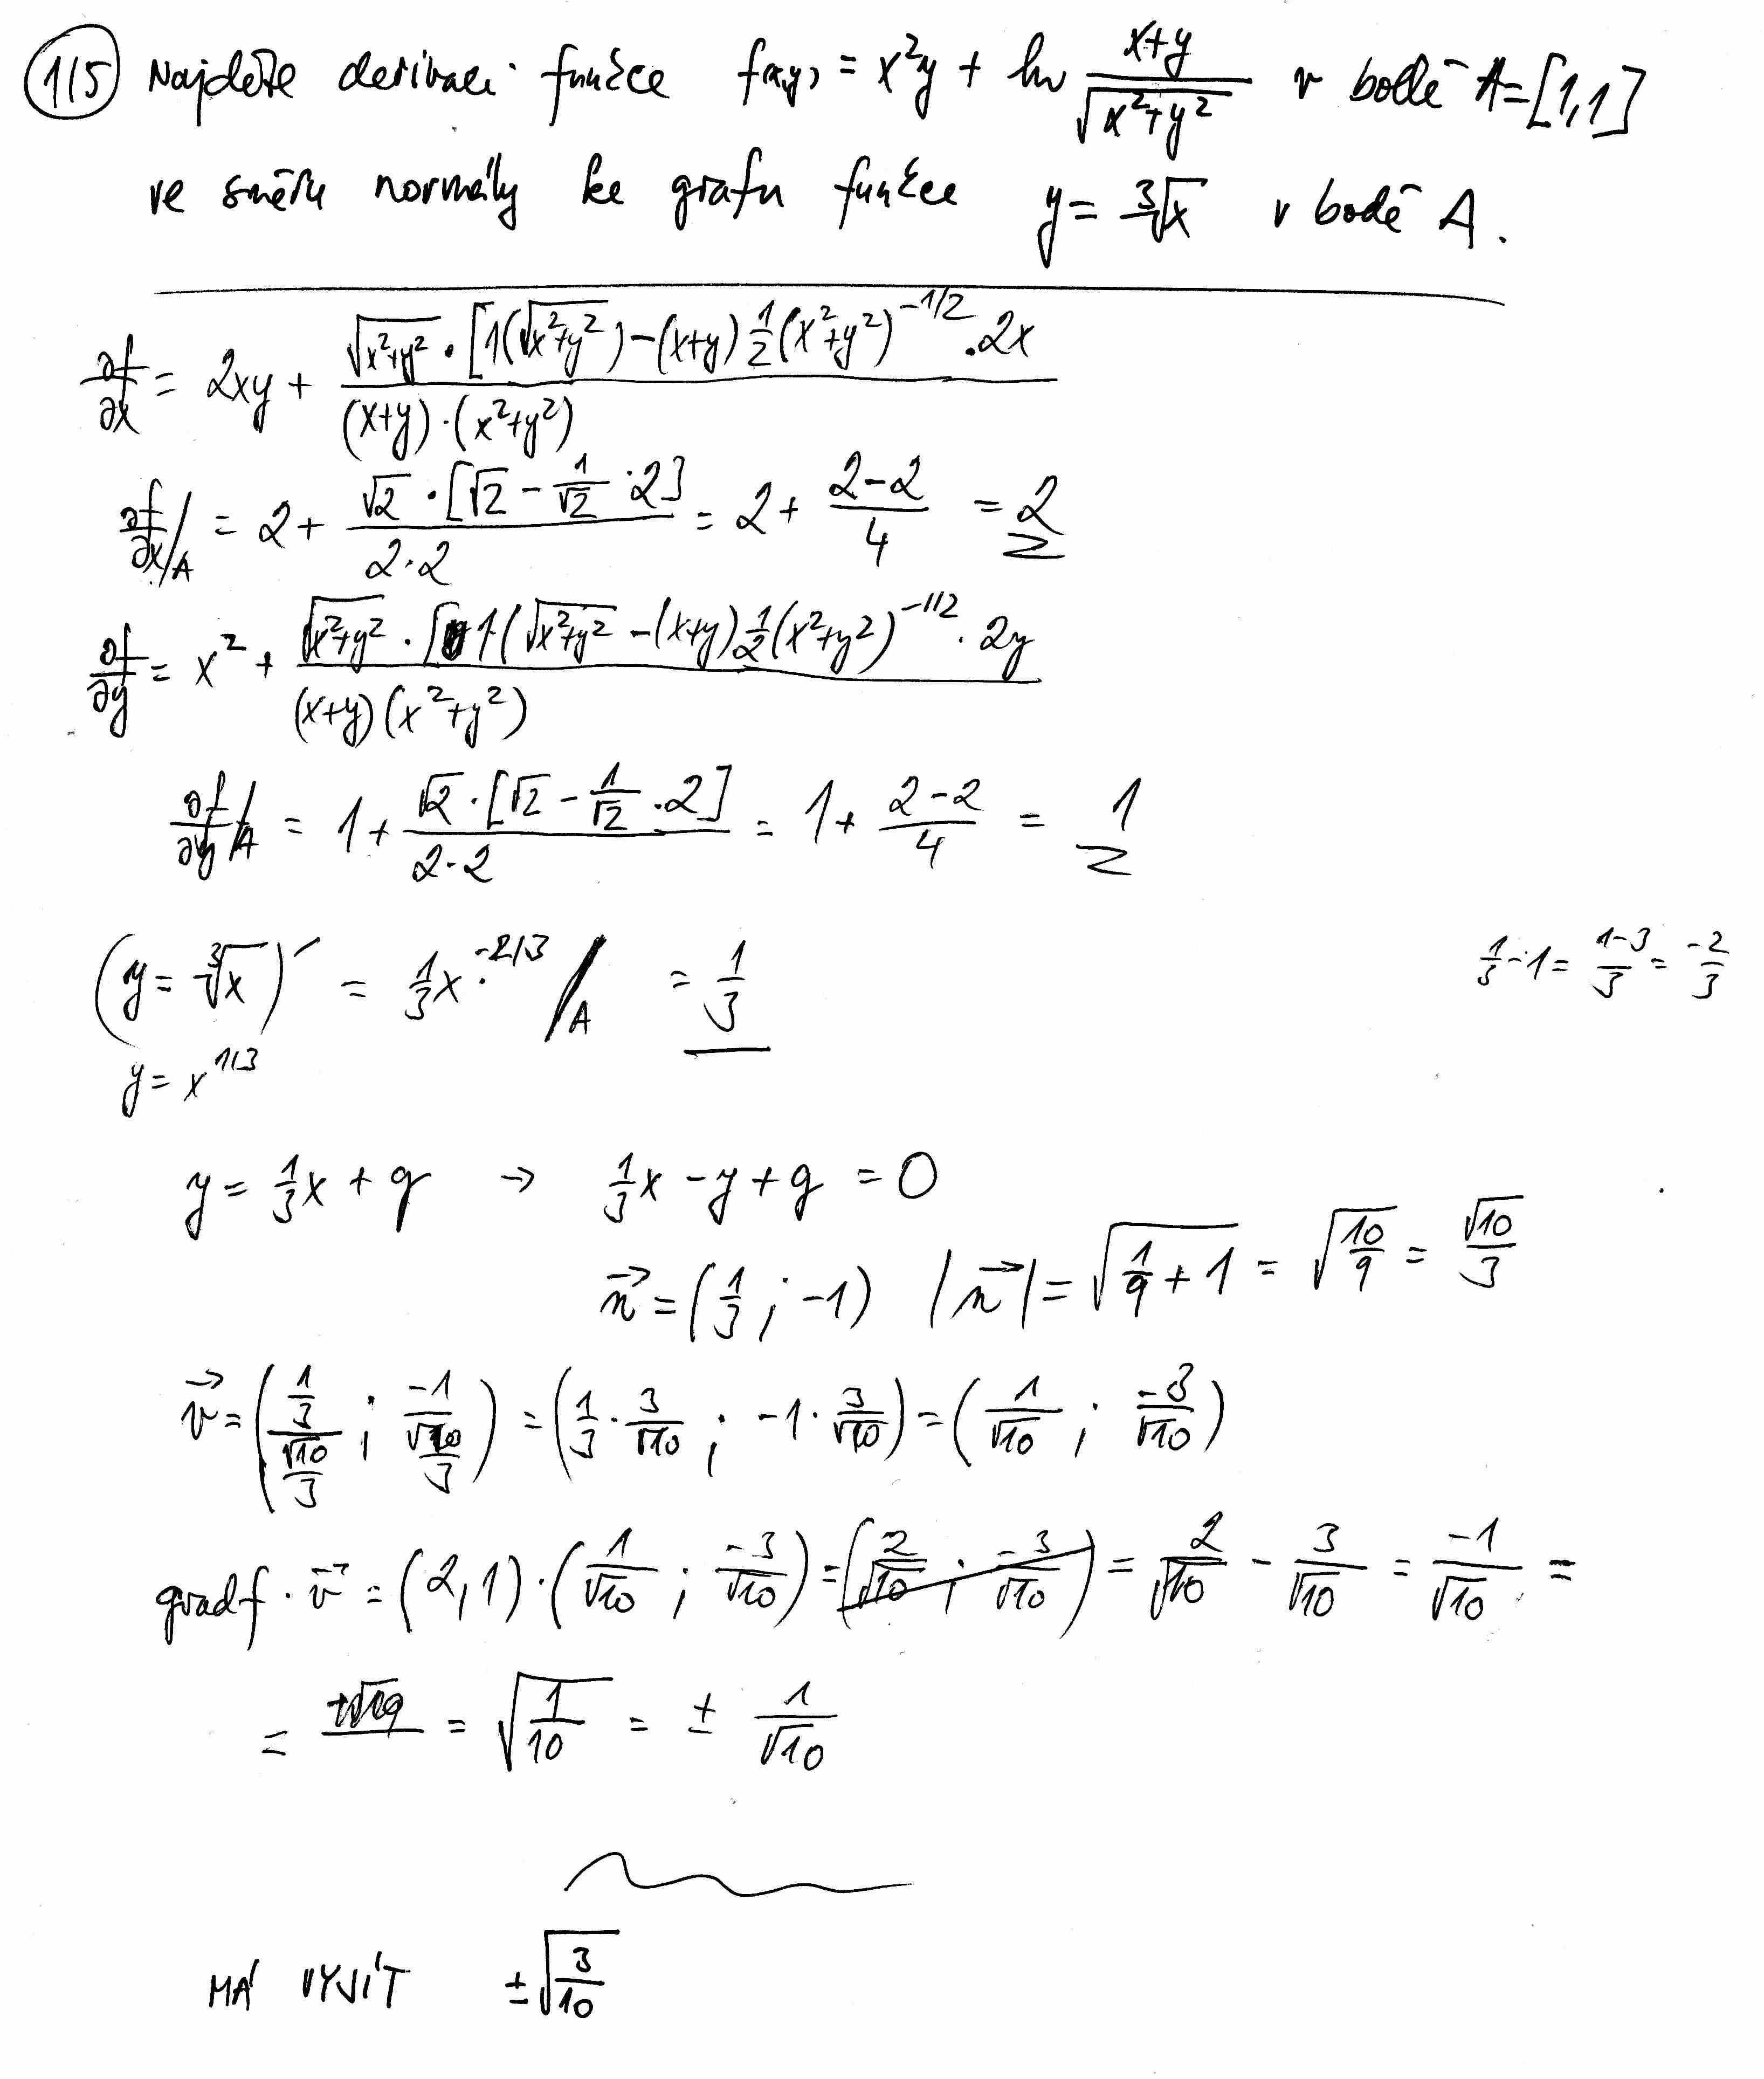 1/5 Najděte derivaci funkce f(x,y) = x²y + ln (x+y)/√(x²+y²) v bodě A=[1,1]
ve směru normály ke grafu funkce y = ∛x v bodě A.
∂f/∂x = 2xy + (√(x²+y²) · [1(√(x²+y²)) − (x+y) 1/2 (x²+y²)^(−1/2) · 2x) / ((x+y)·(x²+y²))
∂f/∂x /A = 2 + (√2 · [√2 − 1/√2 · 2]) / (2·2) = 2 + (2−2)/4 = 2
∂f/∂y = x² + (√(x²+y²) · [1(√(x²+y²) − (x+y) 1/2 (x²+y²)^(−1/2) · 2y) / ((x+y)(x²+y²))
∂f/∂y /A = 1 + (√2 · [√2 − 1/√2 · 2]) / (2·2) = 1 + (2−2)/4 = 1
(y = ∛x)′ = 1/3 x^(−2/3) /A = 1/3
1/3 − 1 = (1−3)/3 = −2/3
y = x^(1/3)
y = 1/3 x + q → 1/3 x − y + q = 0
n⃗ = (1/3 ; −1) |n⃗| = √(1/9 + 1) = √(10/9) = √10/3
v⃗ = ((1/3)/(√10/3) ; −1/(√10/3)) = (1/3 · 3/√10 ; −1 · 3/√10) = (1/√10 ; −3/√10)
grad f · v⃗ = (2,1) · (1/√10 ; −3/√10) = (2/√10 ; −3/√10) = 2/√10 − 3/√10 = −1/√10 =
= = √(1/10) = ± 1/√10
MÁ VYJÍT ±√(3/10)